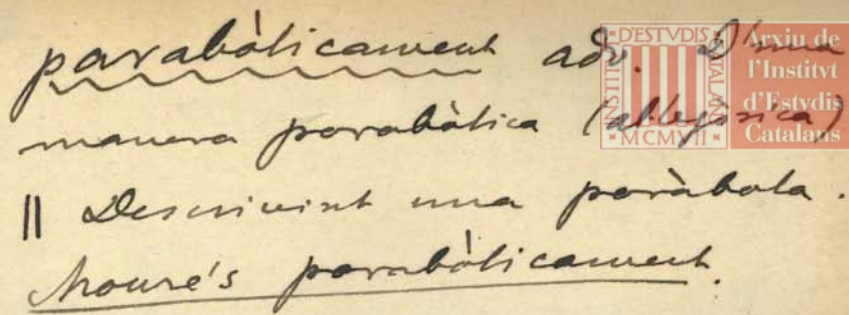 parabòlicament adv. D'una
manera parabòlica (al·legòrica)
|| Descrivint una paràbola.
Moure's parabòlicament.
D'ESTVDIS
INSTITVT
CATALANS
MCMVII
Arxiu de
l'Institvt
d'Estvdis
Catalans